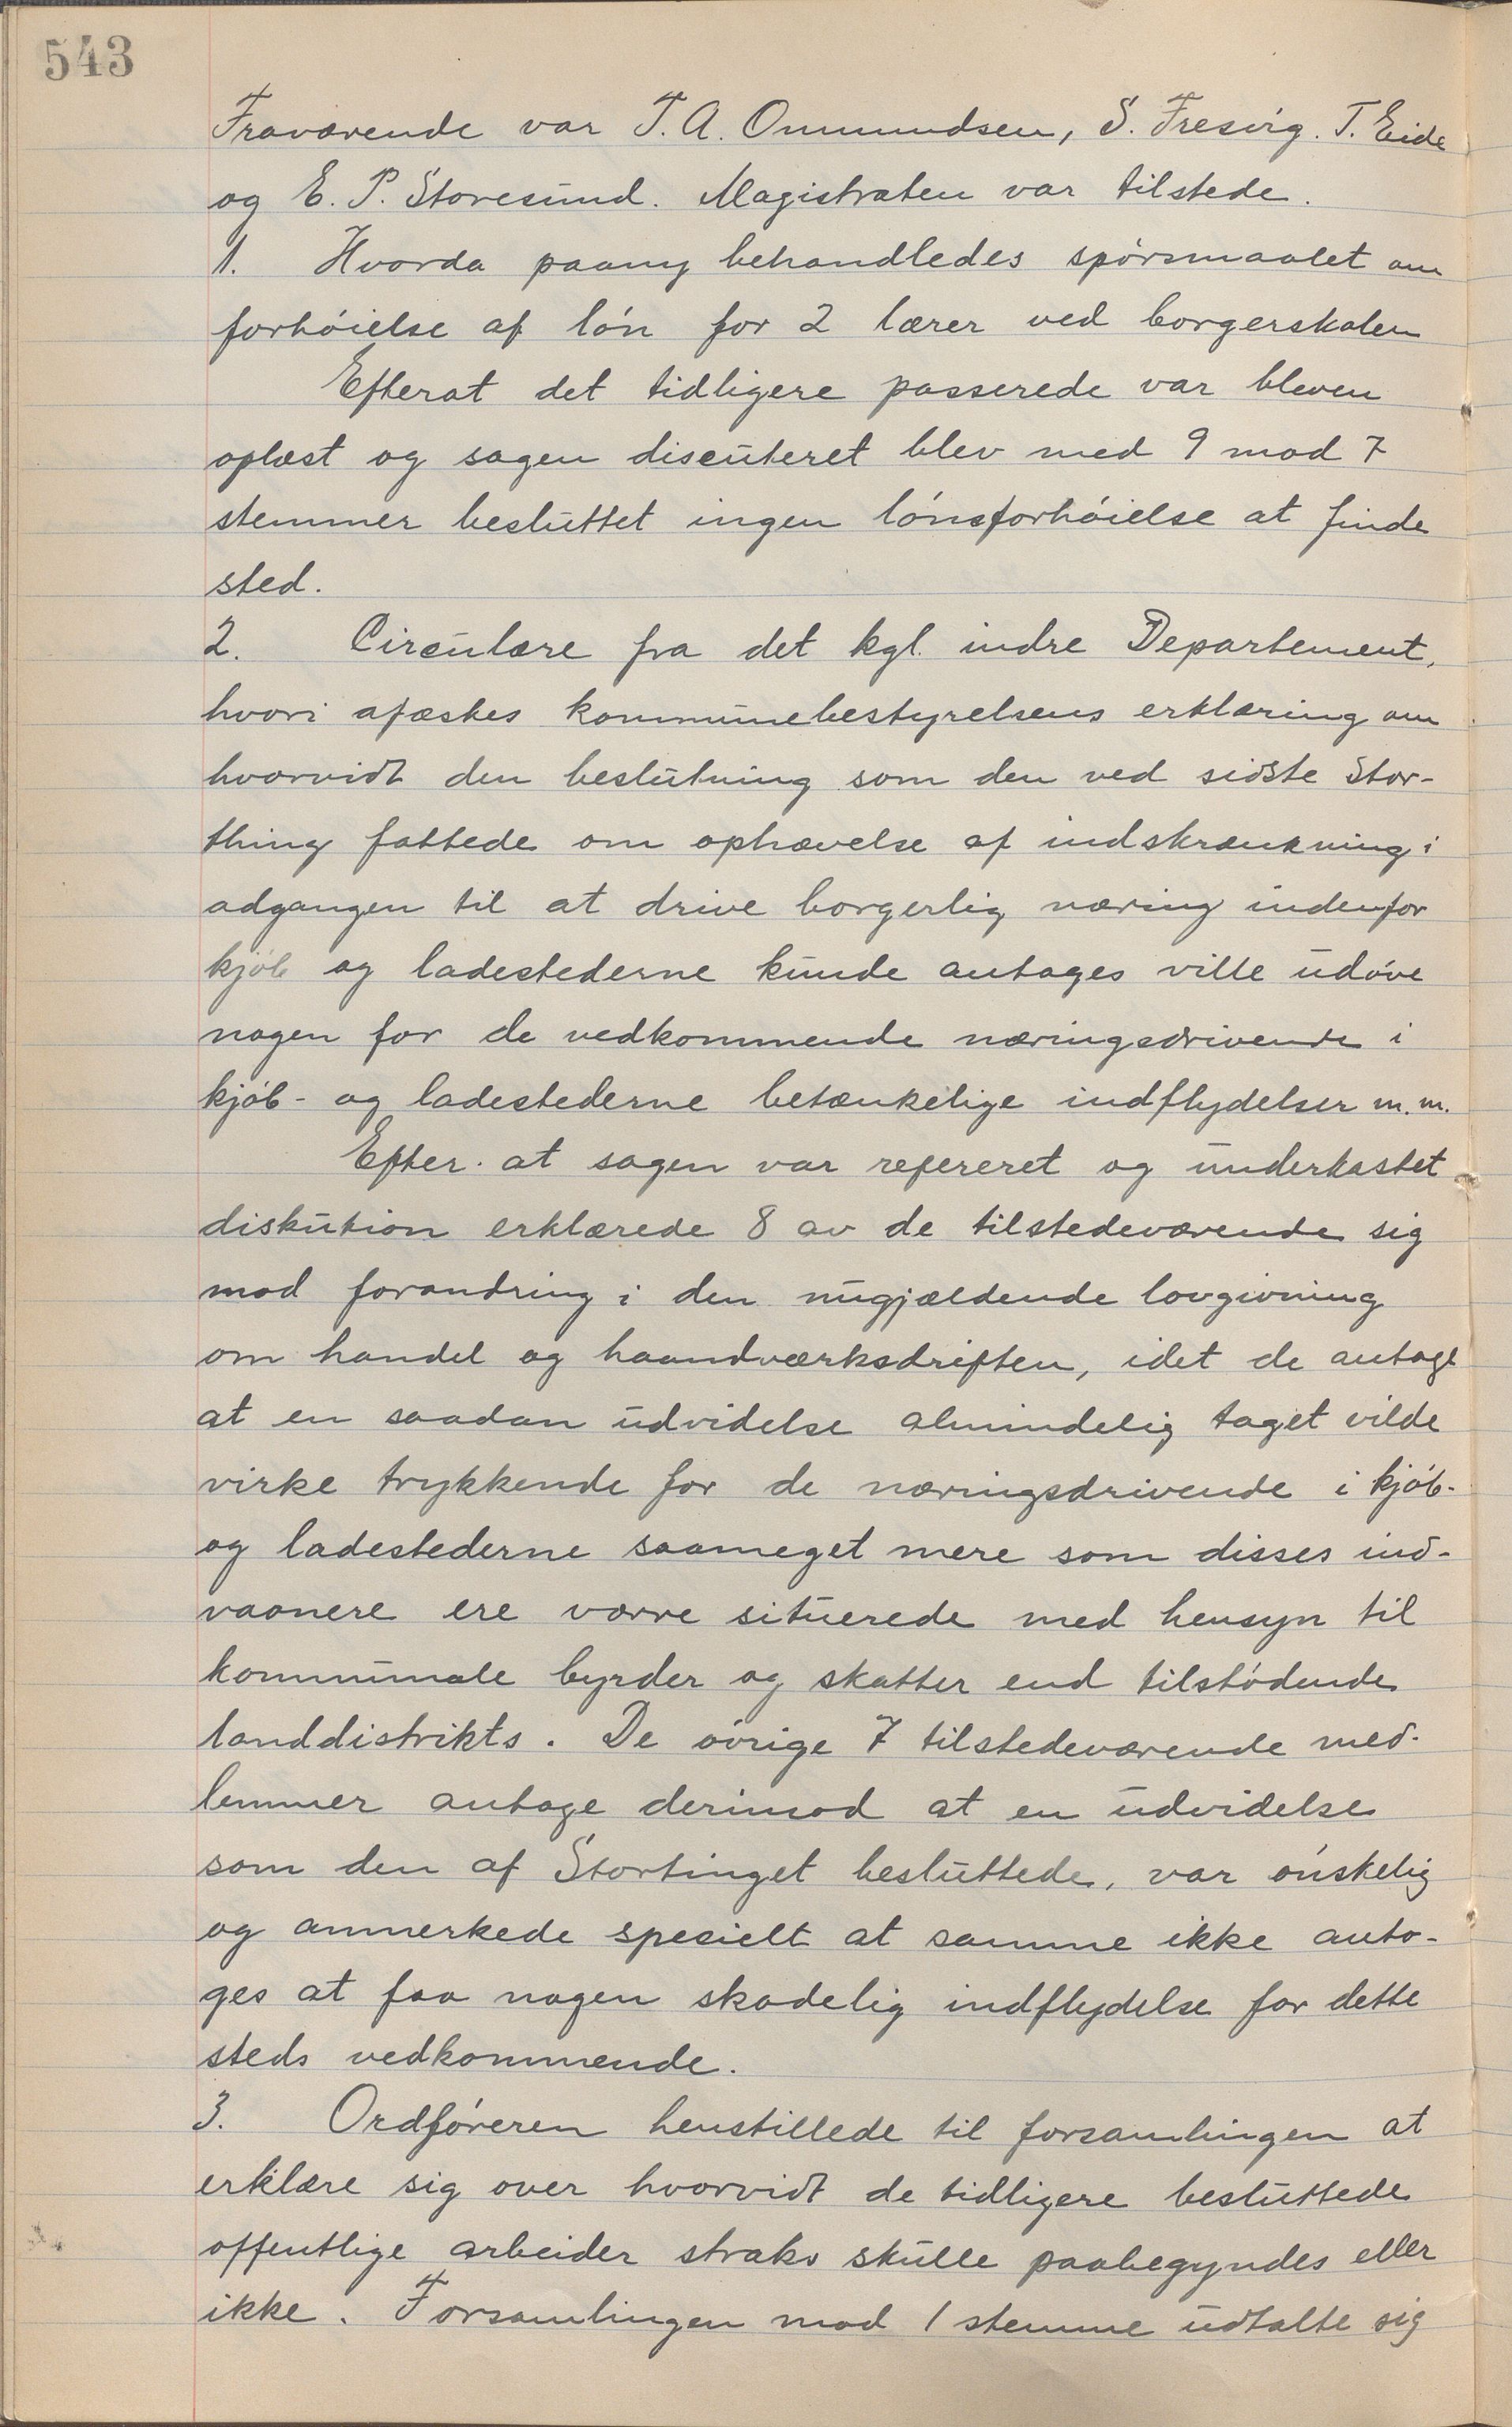 543
Fraværende var T. A. Ommundsen, S. Fresvig. T. Eide
og E. P. Storesund. Magistraten var tilstede.
1. Hvorda paany behandledes spörsmaalet om
forhöielse af lön for 2 lærer ved borgerskolen
Efterat det tidligere passerede var bleven
oplæst og sagen discuteret blev med 9 mod 7
stemmer besluttet ingen lönsforhöielse at finde
sted.
2. Circulære fra det kgl. indre Departement,
hvori afæskes kommunebestyrelsens erklæring om
hvorvidt den beslutning som den ved sidste Stor-
thing fattede om ophævelse af indskrænkning i
adgangen til at drive borgerlig næring indenfor
kjöb og ladestederne kunde antages ville udöve
nogen for de vedkommende næringsdrivende i
kjöb- og ladestederne betænkelige indflydelser m.m.
Efter at sagen var refereret og underkastet
diskution erklærede 8 av de tilstedeværende sig
mod forandring i den nugjældende lovgivning
om handel og haandværksdriften, idet de antoge
at en saadan udvidelse almindelig taget vilde
virke trykkende for de næringsdrivende i kjöb-
og ladestederne saameget mere som disses ind-
vaanere ere værre situerede med hensyn til
kommunale byrder og skatter end tilstödende
landdistrikts. De övrige 7 tilstedeværende med-
lemmer antoge derimod at en udvidelse
som den af Stortinget besluttede, var önskelig
og anmerkede spesielt at samme ikke anto-
ges at faa nogen skadelig indflydelse for dette
steds vedkommende.
3. Ordföreren henstillede til forsamlingen at
erklære sig over hvorvidt de tidligere besluttede
offentlige arbeider straks skulle paabegyndes eller
ikke. Forsamlingen mod 1 stemme udtalte sig